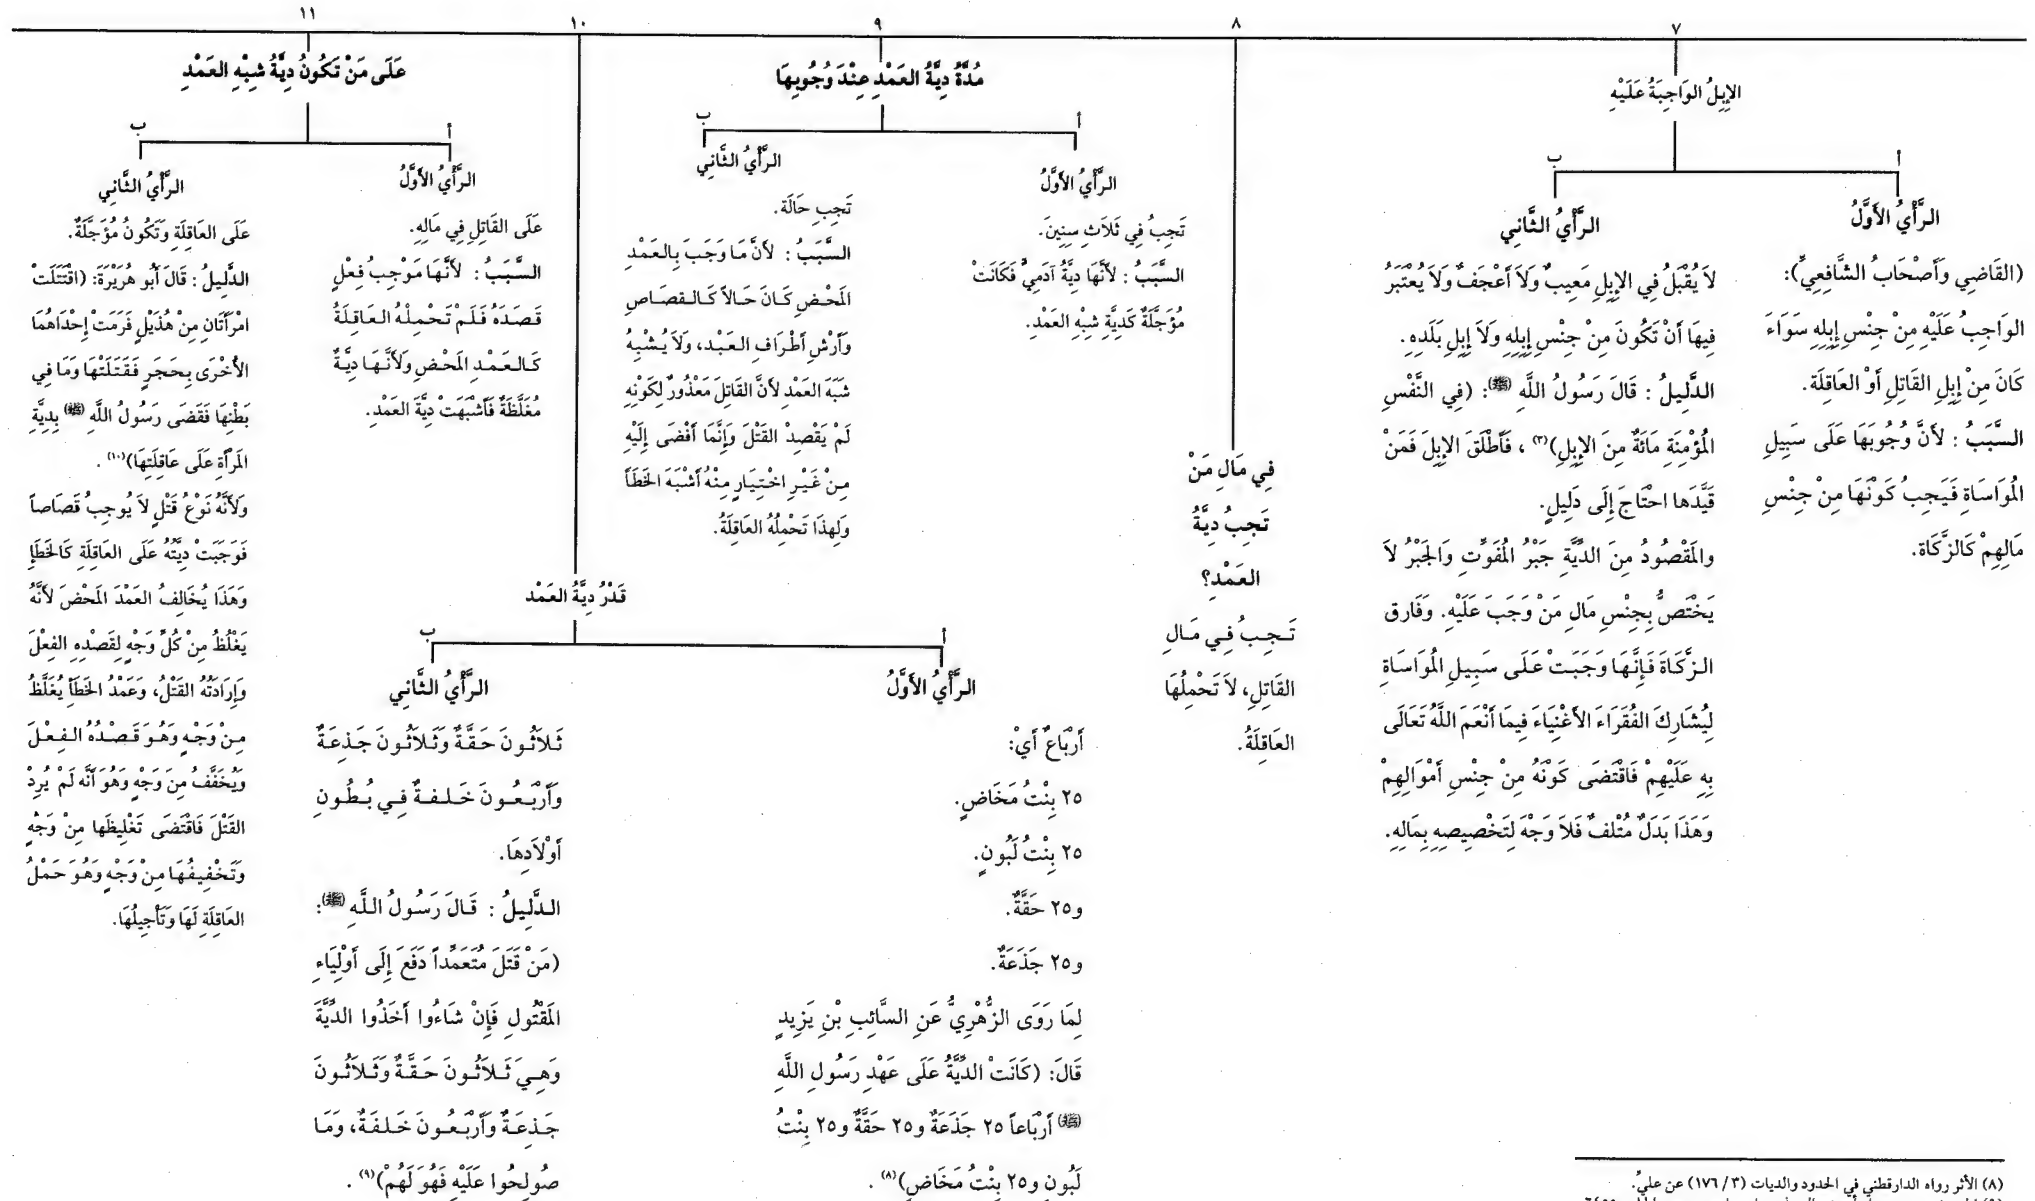 ٧
الإِبِلُ الوَاجِبَةُ عَلَيْهِ
أ
الرَّأْيُ الأَوَّلُ
(القَاضِي وَأَصْحَابُ الشَّافِعِيِّ):
الوَاجِبُ عَلَيْهِ مِنْ جِنْسِ إِبِلِهِ سَوَاءَ
كَانَ مِنْ إِبِلِ القَاتِلِ أَوْ العَاقِلَة.
السَّبَبُ : لأَنَّ وُجُوبَهَا عَلَى سَبِيلِ
المُوَاسَاةِ فَيَجِبُ كَوْنَهَا مِنْ جِنْسِ
مَالِهِمْ كَالزَّكَاة.
ب
الرَّأْيُ الثَّانِي
لاَ يُقْبَلُ فِي الإِبِلِ مَعِيبٌ وَلاَ أَعْجَفٌ وَلاَ يُعْتَبَرُ
فِيهَا أَنْ تَكُونَ مِنْ جِنْسِ إِبِلِهِ وَلاَ إِبِلِ بَلَدِهِ.
الدَّلِيلُ : قَالَ رَسُولُ اللَّهِ ﷺ: (فِي النَّفْسِ
المُؤْمِنَةِ مَائَةٌ مِنَ الإِبِلِ)(٣) ، فَأَطْلَقَ الإِبِلَ فَمَنْ
قَيَّدَهَا احْتَاجَ إِلَى دَلِيلٍ.
والمَقْصُودُ مِنَ الدِّيَّةِ جَبْرُ المُفَوَّتِ وَالجَبْرُ لاَ
يَخْتَصُّ بِجِنْسِ مَالِ مَنْ وَجَبَ عَلَيْهِ. وَفَارق
الزَّكَاةَ فَإِنَّهَا وَجَبَتْ عَلَى سَبِيلِ المُوَاسَاةِ
لِيُشَارِكَ الفُقَرَاءَ الأَغْنِيَاءَ فِيمَا أَنْعَمَ اللَّهُ تَعَالَى
بِهِ عَلَيْهِمْ فَاقْتَضَى كَوْنَهُ مِنْ جِنْسِ أَمْوَالِهِمْ
وَهَذَا بَدَلٌ مُتْلِفٌ فَلاَ وَجْهَ لِتَخْصِيصِهِ بِمَالِهِ.
٨
فِي مَالِ مَنْ
تَجِبُ دِيَّةُ
العَمْدِ؟
تَجِبُ فِي مَالِ
القَاتِلِ، لاَ تَحْمِلُهَا
العَاقِلَةُ.
٩
مُدَّةُ دِيَّةُ العَمْدِ عِنْدَ وُجُوبِهَا
أ
الرَّأْيُ الأَوَّلُ
تَجِبُ فِي ثَلاَثِ سِنِينَ.
السَّبَبُ : لأَنَّهَا دِيَّةُ آدَمِيٍّ فَكَانَتْ
مُؤَجَّلَةٌ كَدِيَّةِ شِبْهِ العَمْدِ.
ب
الرَّأْيُ الثَّانِي
تَجِب حَالَة.
السَّبَبُ : لأَنَّ مَا وَجَبَ بِالعَمْدِ
المَحْضِ كَانَ حَالاً كَالقصَاصِ
وَأَرْشِ أَطْرَافِ العَبْدِ، وَلاَ يُشْبِهُ
شَبَهَ العَمْدِ لأَنَّ القَاتِلَ مَعْذُورٌ لِكَوْنِهِ
لَمْ يَقْصِدْ القَتْلَ وَإِنَّمَا أَفْضَى إِلَيْهِ
مِنْ غَيْرِ اخْتِيَارٍ مِنْهُ أَشْبَهَ الخَطَأَ
وَلِهذَا تَحْمِلُهُ العَاقِلَةُ.
١٠
قَدْرُ دِيَّةُ العَمْد
أ
الرَّأْيُ الأَوَّلُ
أَرْبَاعٌ أَيْ:
٢٥ بِنْتُ مَخَاضٍ.
٢٥ بِنْتُ لَبُونٍ.
و٢٥ حَقَّةٌ.
و٢٥ جَذَعَةٌ.
لِمَا رَوَى الزُّهْرِيُّ عَنِ السَّائِبِ بْنِ يَزِيدٍ
قَالَ: (كَانَتْ الدِّيَّةُ عَلَى عَهْدِ رَسُولِ اللَّهِ
ﷺ أَرْبَاعاً ٢٥ جَذَعَةٌ و٢٥ حَقَّةٌ و٢٥ بِنْتُ
لَبُونٍ و٢٥ بِنْتُ مَخَاضٍ)(٨) .
ب
الرَّأْيُ الثَّانِي
ثَلاَثُونَ حَقَّةٌ وَثَلاَثُونَ جَذعَةٌ
وَأَرْبَعُونَ خَلفةٌ فِي بُطُون
أَوْلاَدِهَا.
الدَّلِيلُ : قَالَ رَسُولُ اللَّهِ ﷺ:
(مَنْ قَتَلَ مُتَعَمِّداً دَفَعَ إِلَى أَوْلِيَاءِ
المَقْتُولِ فَإِنْ شَاءُوا أَخَذُوا الدِّيَّةَ
وَهِيَ ثَلاَثُونَ حَقَّةٌ وَثَلاَثُونَ
جَذعَةٌ وَأَرْبَعُونَ خَلفَةٌ، وَمَا
صُولِحُوا عَلَيْهِ فَهُوَ لَهُمْ)(٩) .
١١
عَلَى مَنْ تَكُونُ دِيَّةُ شِبْهِ العَمْدِ
أ
الرَّأْيُ الأَوَّلُ
عَلَى القَاتِلِ فِي مَالِهِ.
السَّبَبُ : لأَنَّهَا مَوْجِبُ فِعْلٍ
قَصَدَهُ فَلَمْ تَحْمِلْهُ العَاقِلَةُ
كَالعَمْدِ المَحْضِ وَلأَنَّهَا دِيَّةٌ
مُغَلَّظَةٌ فَأَشْبَهَتْ دِيَّةَ العَمْدِ.
ب
الرَّأْيُ الثَّانِي
عَلَى العَاقِلَةِ وَتَكُونُ مُؤَجَّلَةٌ.
الدَّلِيلُ : قَالَ أَبُو هُرَيْرَةَ: (اقْتَتَلَتْ
امْرَأَتَانِ مِنْ هُذَيْلٍ فَرَمَتْ إِحْدَاهُمَا
الأُخْرَى بِحَجَرٍ فَقَتَلَتْهَا وَمَا فِي
بَطْنِهَا فَقَضَى رَسُولُ اللَّهِ ﷺ بِدِيَّةِ
المَرْأَةِ عَلَى عَاقِلَتِهَا)(١٠) .
وَلأَنَّهُ نَوْعُ قَتْلٍ لاَ يُوجِبُ قَصَاصاً
فَوَجَبَتْ دِيَّتُهُ عَلَى العَاقِلَةِ كَالخَطَإِ
وَهَذَا يُخَالِفُ العَمْدَ المَحْضَ لأَنَّهُ
يَغْلُظُ مِنْ كُلِّ وَجْهٍ لِقَصْدِهِ الفِعْلَ
وَإِرَادَتُهُ القَتْلُ، وَعَمْدُ الخَطَأ يُغَلَّظُ
مِنْ وَجْهٍ وَهُوَ قَصْدُهُ الفِعْلَ
وَيُخَفَّفُ مِنَ وَجْهٍ وَهُوَ أَنَّه لَمْ يُرِدْ
القَتْلَ فَاقْتَضَى تَغْلِيظَها مِنْ وَجْهٍ
وَتَخْفِيفُهَا مِنْ وَجْهٍ وَهُوَ حَمْلُ
العَاقِلَةِ لَهَا وَتَأْجِيلُهَا.
(٨) الأثر رواه الدارقطني في الحدود والديات (٣/ ١٧٦) عن عليّ.